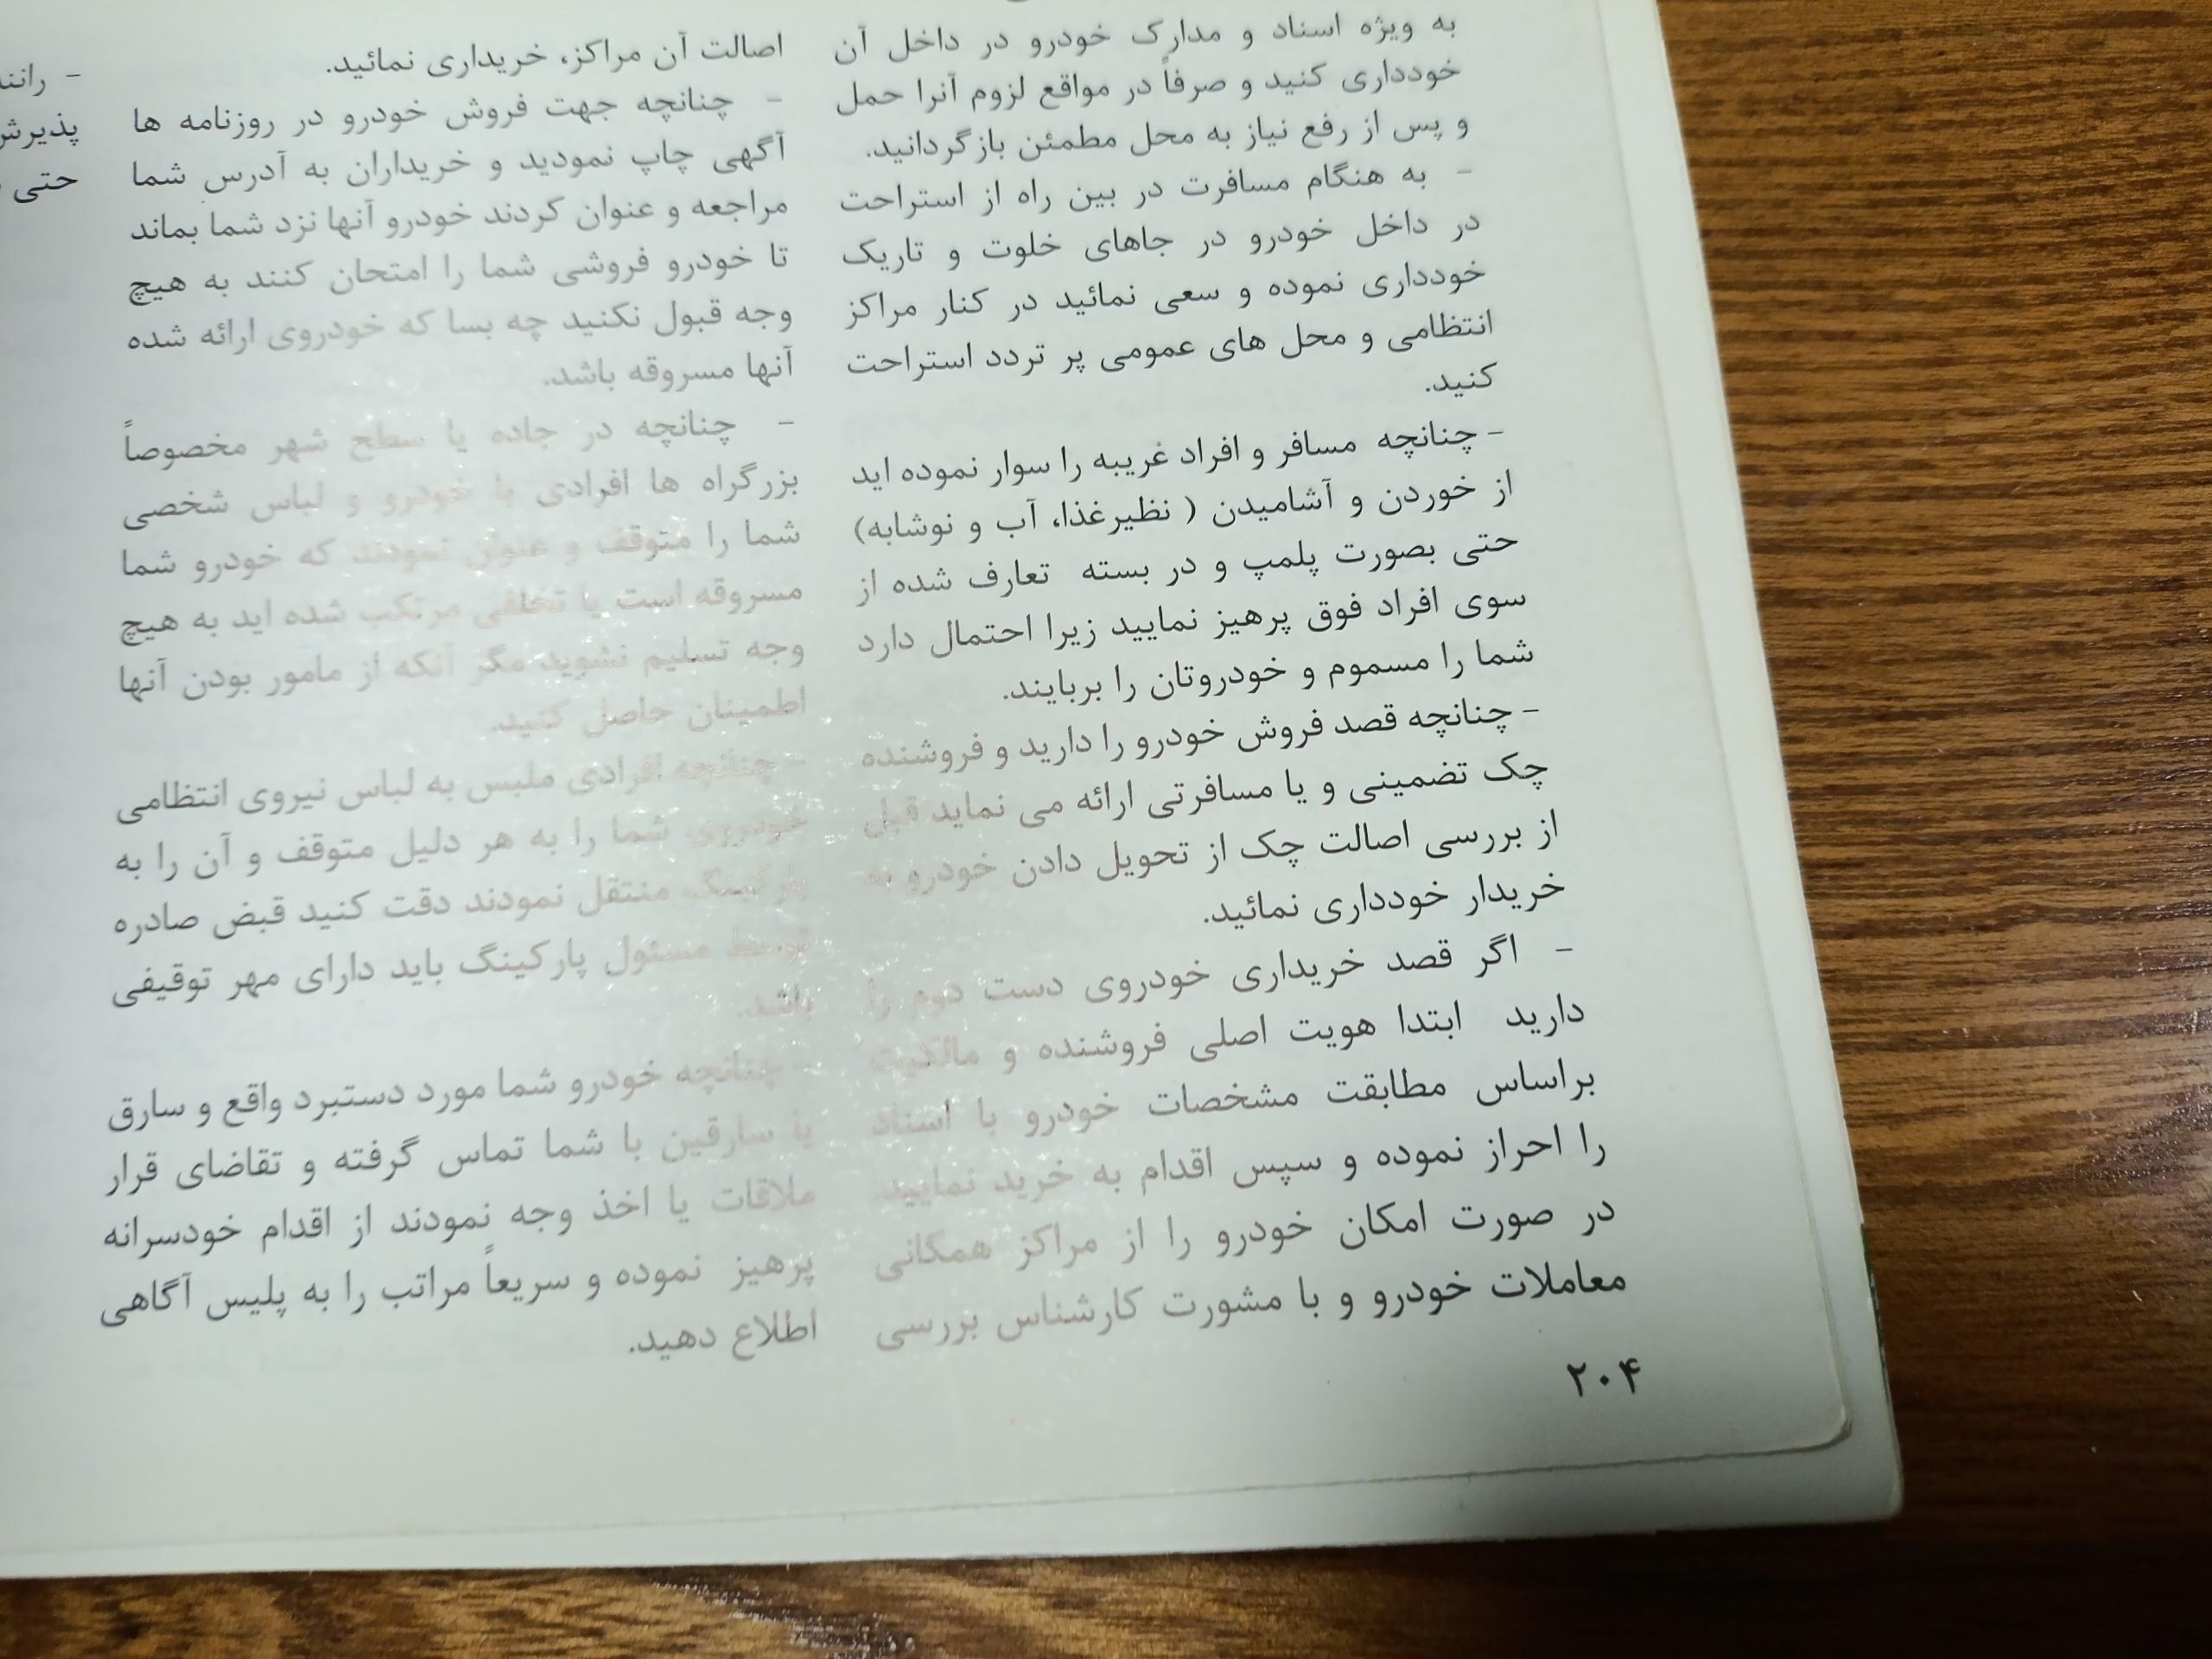 به ویژه اسناد و مدارک خودرو در داخل آن
خودداری کنید و صرفاً در مواقع لزوم آنرا حمل
و پس از رفع نیاز به محل مطمئن بازگردانید.
- به هنگام مسافرت در بین راه از استراحت
در داخل خودرو در جاهای خلوت و تاریک
خودداری نموده و سعی نمائید در کنار مراکز
انتظامی و محل های عمومی پر تردد استراحت
کنید.
- چنانچه مسافر و افراد غریبه را سوار نموده اید
از خوردن و آشامیدن ( نظیرغذا، آب و نوشابه)
حتی بصورت پلمپ و در بسته تعارف شده از
سوی افراد فوق پرهیز نمایید زیرا احتمال دارد
شما را مسموم و خودروتان را بربایند.
- چنانچه قصد فروش خودرو را دارید و فروشنده
چک تضمینی و یا مسافرتی ارائه می نماید قبل
از بررسی اصالت چک از تحویل دادن خودرو به
خریدار خودداری نمائید.
- اگر قصد خریداری خودروی دست دوم را
دارید ابتدا هویت اصلی فروشنده و مالکیت
براساس مطابقت مشخصات خودرو با اسناد
را احراز نموده و سپس اقدام به خرید نمایید
در صورت امکان خودرو را از مراکز همگانی
معاملات خودرو و با مشورت کارشناس بررسی
اصالت آن مراکز، خریداری نمائید.
- چنانچه جهت فروش خودرو در روزنامه ها
آگهی چاپ نمودید و خریداران به آدرس شما
مراجعه و عنوان کردند خودرو آنها نزد شما بماند
تا خودرو فروشی شما را امتحان کنند به هیچ
وجه قبول نکنید چه بسا که خودروی ارائه شده
آنها مسروقه باشد.
- چنانچه در جاده یا سطح شهر مخصوصاً
بزرگراه ها افرادی با خودرو و لباس شخصی
شما را متوقف و عنوان نمودند که خودرو شما
مسروقه است یا تخلفی مرتکب شده اید به هیچ
وجه تسلیم نشوید مگر آنکه از مامور بودن آنها
اطمینان حاصل کنید.
- چنانچه افرادی ملبس به لباس نیروی انتظامی
خودروی شما را به هر دلیل متوقف و آن را به
پارکینگ منتقل نمودند دقت کنید قبض صادره
توسط مسئول پارکینگ باید دارای مهر توقیفی
باشد.
- چنانچه خودرو شما مورد دستبرد واقع و سارق
یا سارقین با شما تماس گرفته و تقاضای قرار
ملاقات یا اخذ وجه نمودند از اقدام خودسرانه
پرهیز نموده و سریعاً مراتب را به پلیس آگاهی
اطلاع دهید.
۲۰۴
حتی